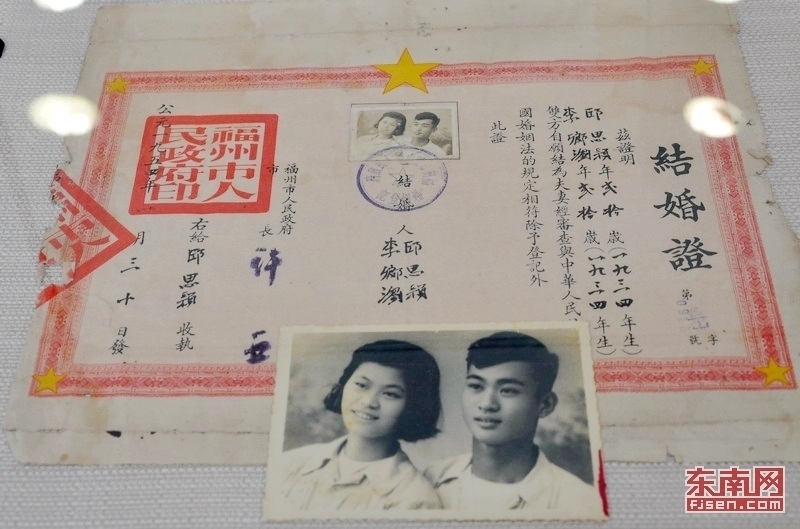 結婚證
第
字
號
茲證明
邱思穎年弍拾歲(一九三四年生)
李鄉濁年弍拾歲(一九三四年生)
雙方自願結為夫妻經審查與中華人民
國婚姻法的規定相符除予登記外
此證
結婚人邱思穎
李鄉濁
福州市人民政府
市長
右給邱思穎收執
公元一九五四年
月三十日發
福州市人
民政府印
东南网
fjsen.com